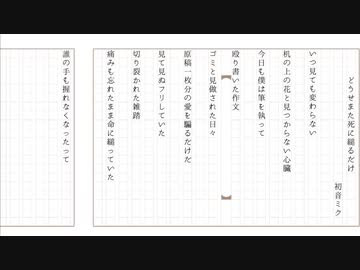 どうせまた死に縋るだけ
初音ミク
いつ見ても変わらない
机の上の花と見つからない心臓
今日も僕は筆を執って
殴り書いた作文
ゴミと見做された日々
原稿一枚分の愛を騙るだけだ
見て見ぬフリしていた
切り裂かれた雑踏
痛みも忘れたまま命に縋っていた
誰の手も握れなくなったって